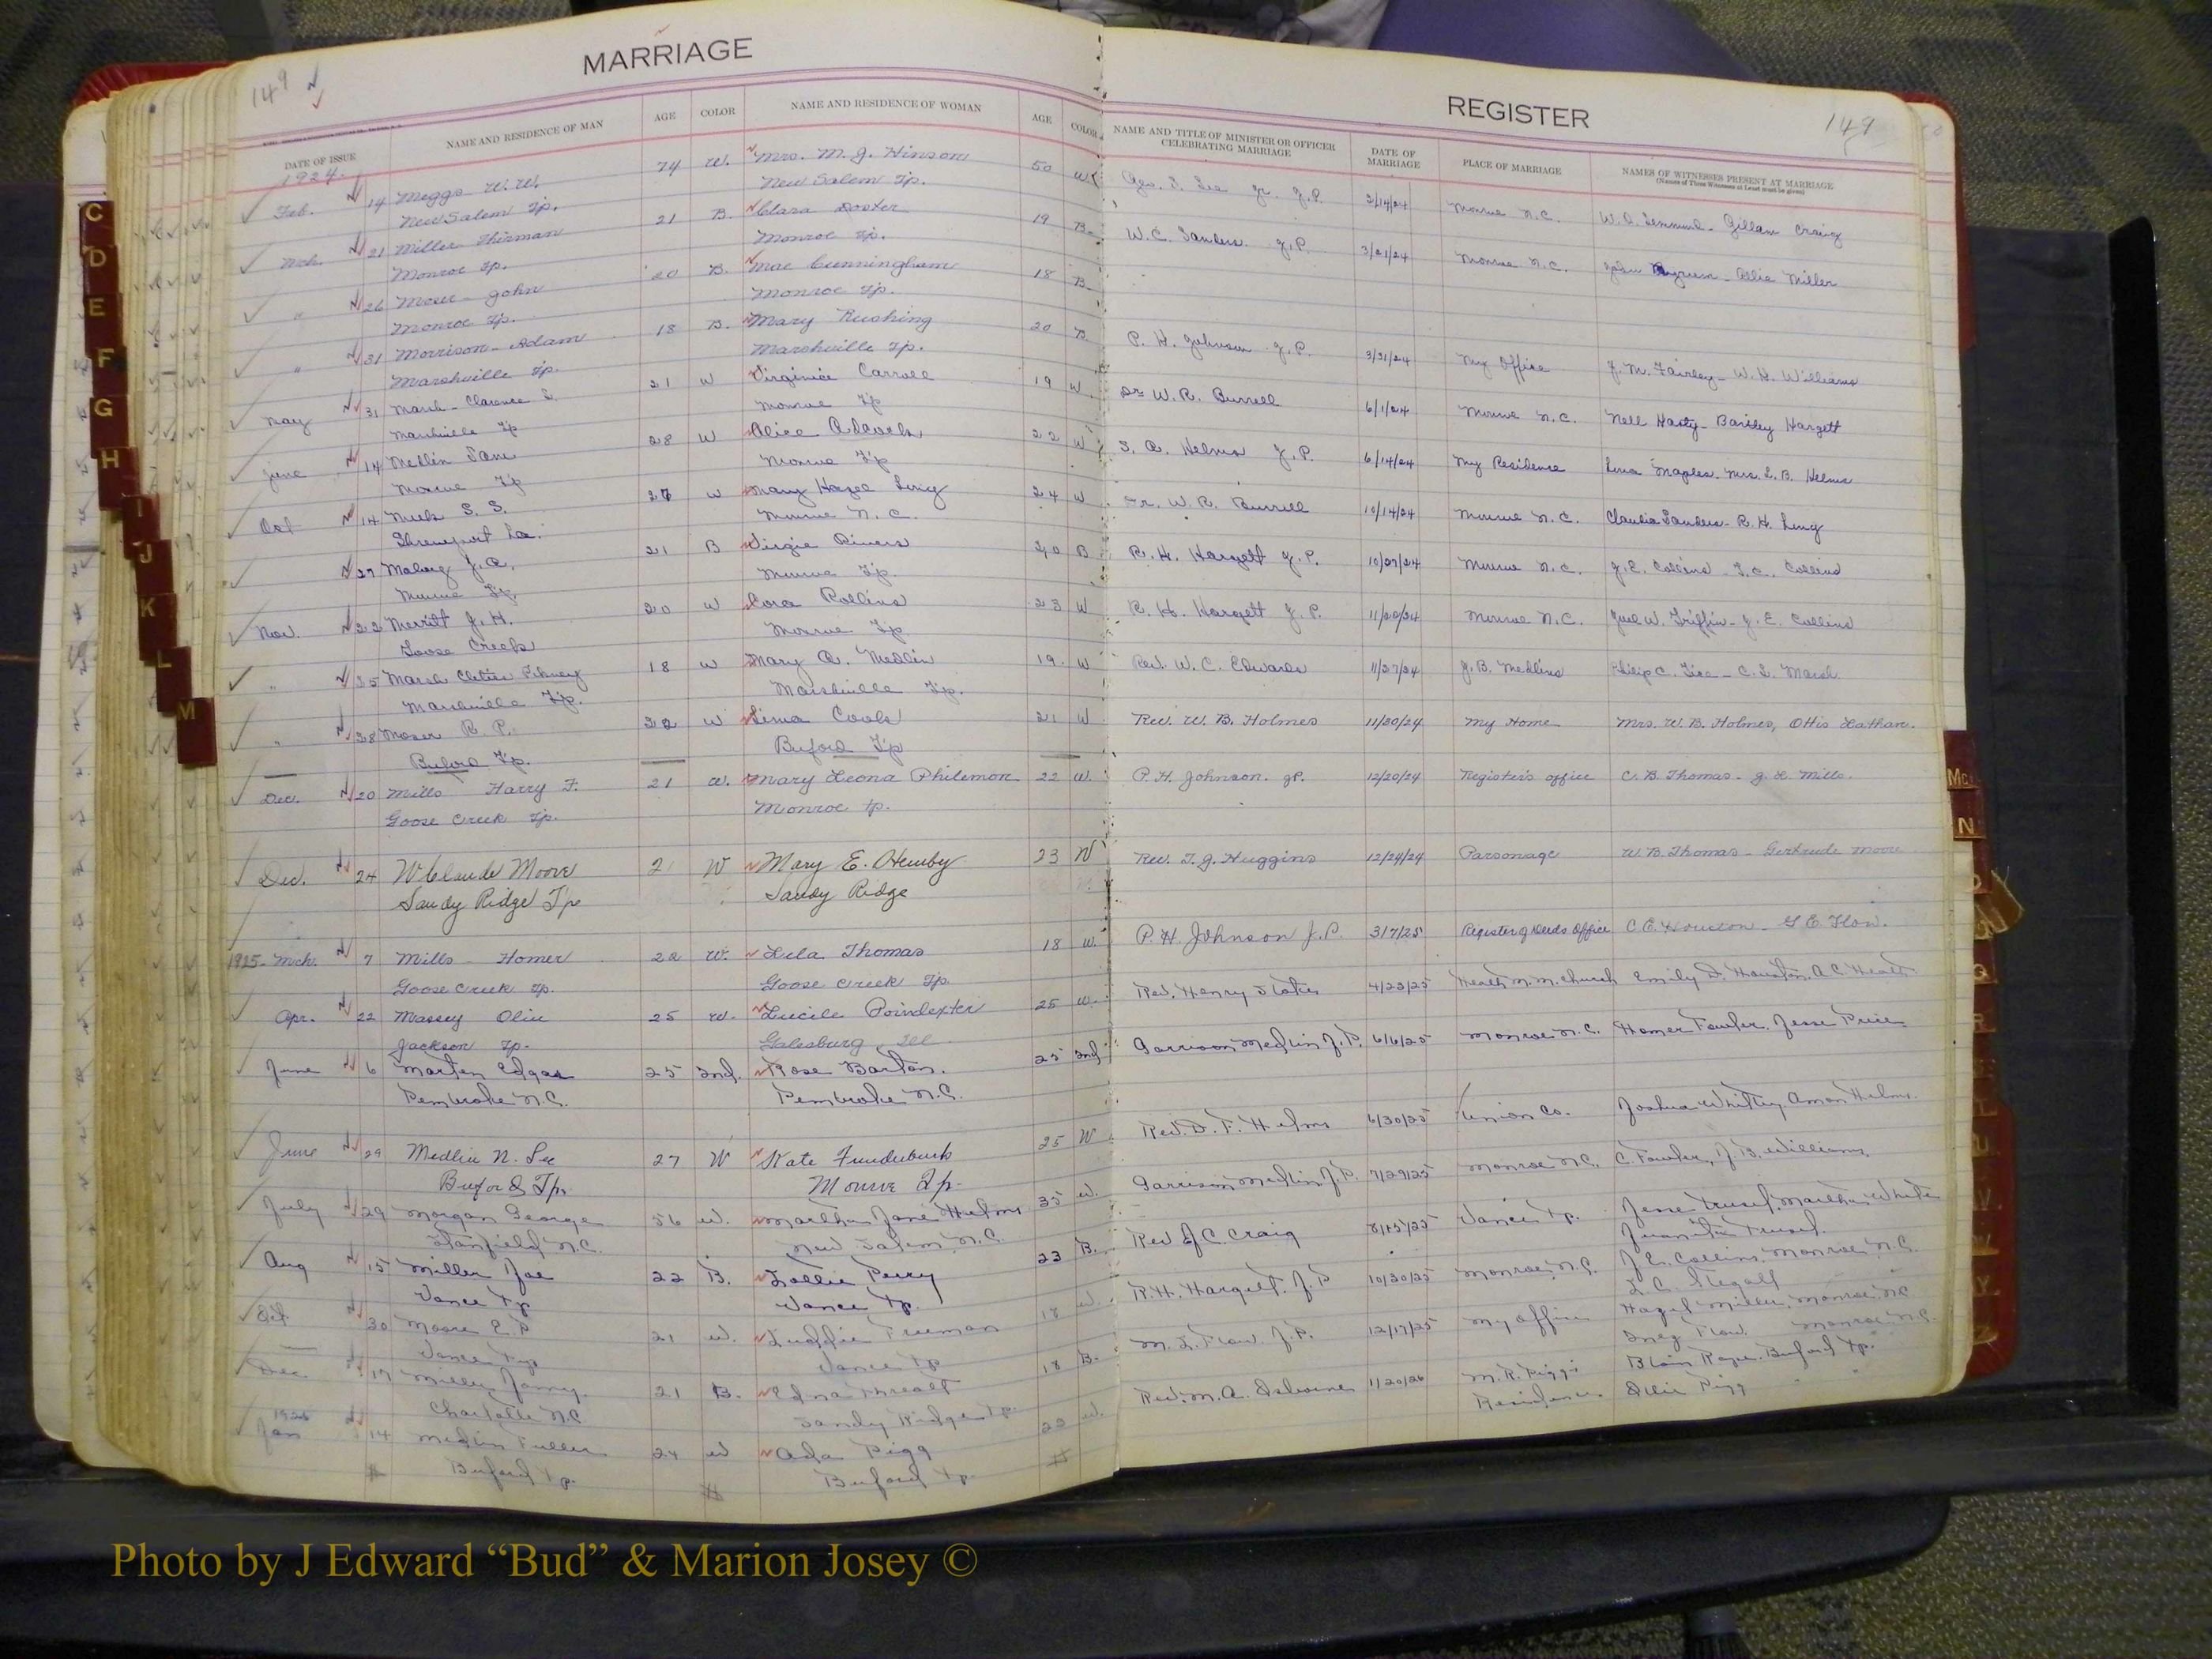 149
MARRIAGE
DATE OF ISSUE NAME AND RESIDENCE OF MAN AGE COLOR NAME AND RESIDENCE OF WOMAN AGE COLOR
1924.
Feb. 14 Meggs W. W. 74 W. Mrs. M. J. Hinson 50 W
New Salem Tp. New Salem Tp.
Mch. 21 Miller Thirman 21 B. Clara Doster 19 B.
Monroe Tp. Monroe Tp.
" 26 Moser - John 20 B. Mae Cunningham 18 B.
Monroe Tp. Monroe Tp.
" 31 Morrison - Adam 18 B. Mary Rushing 20 B.
Marshville Tp. Marshville Tp.
May 31 Marsh - Clarence S. 21 W Virginia Carroll 19 W
Marshville Tp Monroe Tp
June 14 Medlin Sam 28 W Alice 22 W
Monroe Tp Monroe Tp
Oct 14 Meek S. S. 27 W Mary Hazel Long 24 W
Shreveport La. Monroe N. C.
27 J. A. 21 B Virgie Rivers 20 B
Monroe Tp. Monroe Tp.
Nov. 22 Merritt J. H. 20 W Cora Rollins 23 W
Goose Creek Monroe Tp
" 25 Marsh Pikney 18 W Mary A. Medlin 19 W
Marshville Tp. Marshville Tp.
" 28 Moser R. P. 22 W Cook 21 W
Buford Tp. Buford Tp
Dec. 20 Mills Harry F. 21 W. Mary Leona Philemon 22 W.
Goose Creek Tp. Monroe Tp.
Dec. 24 W Claude Moore 21 W Mary E. Hemby 23 W
Sandy Ridge Tp Sandy Ridge
1925 - Mch. 7 Mills - Homer 22 W. Lela Thomas 18 W.
Goose Creek Tp. Goose Creek Tp.
Apr. 22 Massey Olin 25 W. Lucile Poindexter 25 W.
Jackson Tp. Galesburg Ill
June 6 Marten Edgar 25 Ind. Rose Barton. 25 Ind
Pembroke N.C. Pembroke N.C.
June 29 Medlin N. Lee 27 W Kate Funderburk 25 W
Buford Tp. Monroe Tp.
July 29 Morgan George 56 W. Martha Jane Helms 35 W.
Stanfield N.C. New Salem N.C.
Aug 15 Miller Joe 22 B. Lollie Perry 23 B.
Vance Tp Vance Tp.
Oct 30 Moore E. P 21 W. Freeman 18 W.
Vance Tp Vance Tp
Dec 17 21 B. Edna Threatt 18 B.
Charlotte N.C Sandy Ridge Tp.
1926
Jan 14 Medlin Fuller 24 W Ada Pigg 22 W.
Buford Tp. Buford Tp.
REGISTER
149
NAME AND TITLE OF MINISTER OR OFFICER CELEBRATING MARRIAGE DATE OF MARRIAGE PLACE OF MARRIAGE NAMES OF WITNESSES PRESENT AT MARRIAGE
(Names of Three Witnesses at Least must be given)
Geo. S. Lee Jr. J.P. 2/14/24 Monroe N.C. W. O. Lemmond - Gillam Craig
W. C. Sanders. J.P. 3/21/24 Monroe N.C. John Miller
P. H. Johnson J.P. 3/31/24 My Office J. M. Fairley - W. H. Williams
Dr W. R. Burrell 6/1/24 Monroe N.C. Nell Hasty - Bartley Hargett
S. A. Helms J.P. 6/14/24 My Residence Maples. Mrs. L. B. Helms
Dr. W. R. Burrell 10/14/24 Monroe N.C. Claudia Sanders - R. H. Long
R. H. Hargett J.P. 10/27/24 Monroe N.C. J. E. Collins - T. C. Collins
R. H. Hargett J.P. 11/20/24 Monroe N.C. W. Griffin - J. E. Collins
Rev. W. C. Edwards 11/27/24 J. B. Medlins C. - C. S. Marsh
Rev. W. B. Holmes 11/30/24 My Home Mrs. W. B. Holmes, Ottis Lathan.
P. H. Johnson. JP. 12/20/24 Register's office C. B. Thomas - J. H. Mills.
Rev. T. J. Huggins 12/24/24 Parsonage W. B. Thomas - Gertrude Moore
P. H. Johnson J.P. 3/7/25 Register of Deeds Office C. E. Houston - G. E. Flow.
Rev. Henry Stokes 4/23/25 Heath M. M. Church Emily D. Houston, A. C. Heath
Garrison Medlin J.P. 6/6/25 Monroe N.C. Homer Fowler, Jesse Price
Rev. D. F. Helms 6/30/25 Union Co. Joshua Whitley Amon Helms.
Garrison Medlin J.P. 7/29/25 Monroe N.C. C. Fowler, J. B. Williams,
Rev J C. Craig 8/15/25 Vance Tp. Jesse Martha White
Juanita
R. H. Hargett. J.P 10/30/25 Monroe, N.C. J. E. Collins Monroe N.C.
L. C. Stegall
M. L. Flow J.P. 12/17/25 My office Hazel Miller, Monroe, N.C
Flow Monroe N.C.
Rev. M. A. Osborne 1/20/26 M. R. Pigg's Blain Rape. Buford Tp.
Residence Ollie Pigg " "
C
D
E
F
G
H
I
J
K
L
M
Mc
N
Photo by J Edward “Bud” & Marion Josey ©